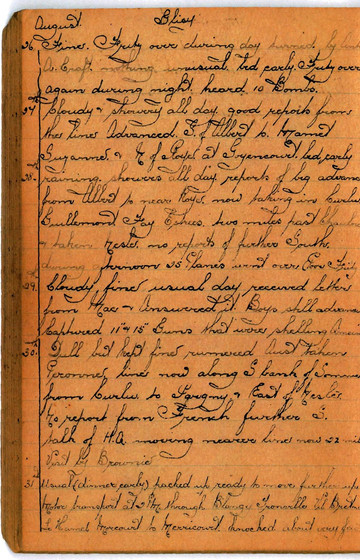 August Blisy
26. Fine. Fritz over during day turned by
A. Craft nothing unusual bed early. Fritz over
again during night. heard 10 Bombs.
27 Cloudy & showery all day. good reports from
the line Advanced. E. of Albert to Mamet
Suzanne. & N of Roye at bed early
28. raining, showers all day. reports of big advance
from Albert to near Roye. now taking in Curlu
Guillemont Fay two miles past Chaulnes
& taken Nesle. no reports of further North.
during afternoon 25 Planes went over
29. Cloudy, fine usual day received letter
from & Answered it. Boys still advancing
Captured 11" & 15" Guns that were shelling
30. Dull but kept fine rumoured Aust taken
Peronne line now along S bank of Somme
from Curlu to & East of Nesle.
No report from French further S.
talk of H.Q. moving nearer line now 22 mil
Visit by Brownie
31 Usual (dinner early) packed up ready to move further up
Motor transport at 2 PM through Blangy Tronville
Le Hamel Morcourt to Merricourt. knocked about very